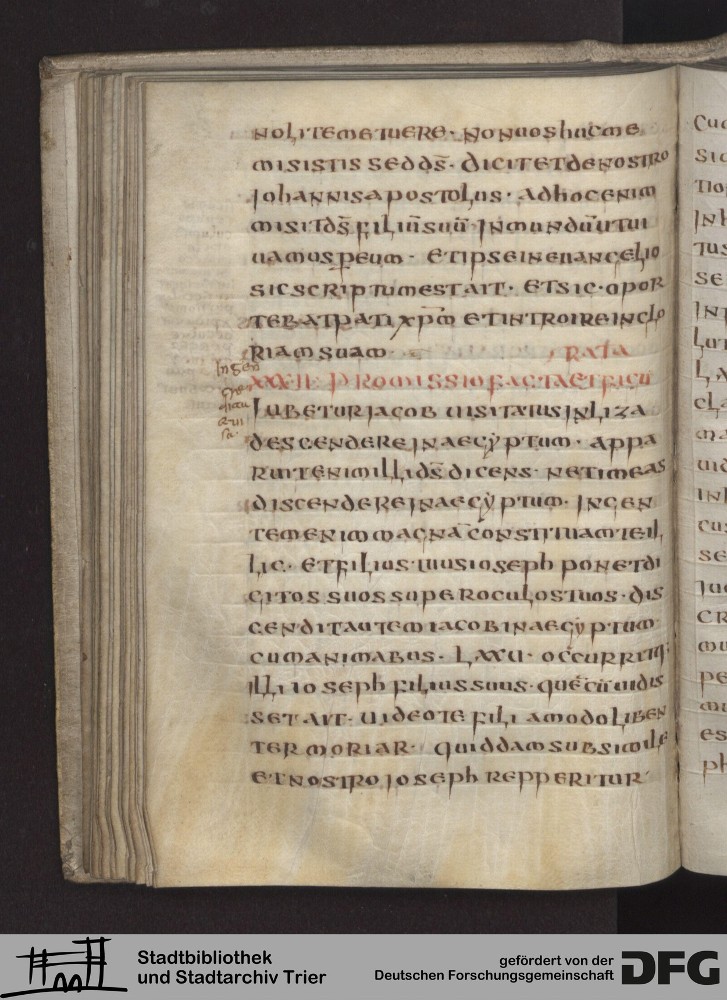 NOLITEMETUERE· NONUOSHUCME
MISISTIS SEDD̅S̅· DICITETDENOSTRO
JOHANNISAPOSTOLUS· ADHOCENIM
MISITD̅S̅FILIU̅SUU̅ INMUNDU̅UTUI
UAMUSPEUM· ETIPSEINEUANGELIO
SICSCRIPTUMESTAIT· ETSIC·OPOR
TEBATPATIXP̅M̅ ETINTROIREINGLO
RIAMSUAM
RATA
XXXII· PROMISSIOFACTAETFIGU
IUBETURJACOB UISITATUSINLIZA
DESCENDEREINAEGẎPTUM· APPA
RUITENIMILLID̅S̅DICENS· NETIMEAS
DISCENDEREINAEGẎPTUM· INGEN
TEMENIMMAGNA̅CONSTITUAMTEIL
LIC· ETFILIUSTUUSIOSEPH PONETDI
GITOSSUOSSUPEROCULOSTUOS·DIS
CENDITAUTEMIACOBINAEGẎPTUM
CUMANIMABUS· LXXU· OCCURRITQ·
ILLIIOSEPHFILIUSSUUS· QUE̅CU̅UIDIS
SETAIT· UIDEOTEFILI AMODOLIBEN
TERMORIAR· QUIDDAMSUBSIMILE
ETNOSTROJOSEPHREPPERITUR·
CU
SI
TIO
INH
TUS
SE
IN
LUT
LA
CLA
MA
UID
INI
CUS
SE
JUD
CR
MU
PE
MU
ES
PH
Stadtbibliothek
und Stadtarchiv Trier
gefördert von der
Deutschen Forschungsgemeinschaft
DFG